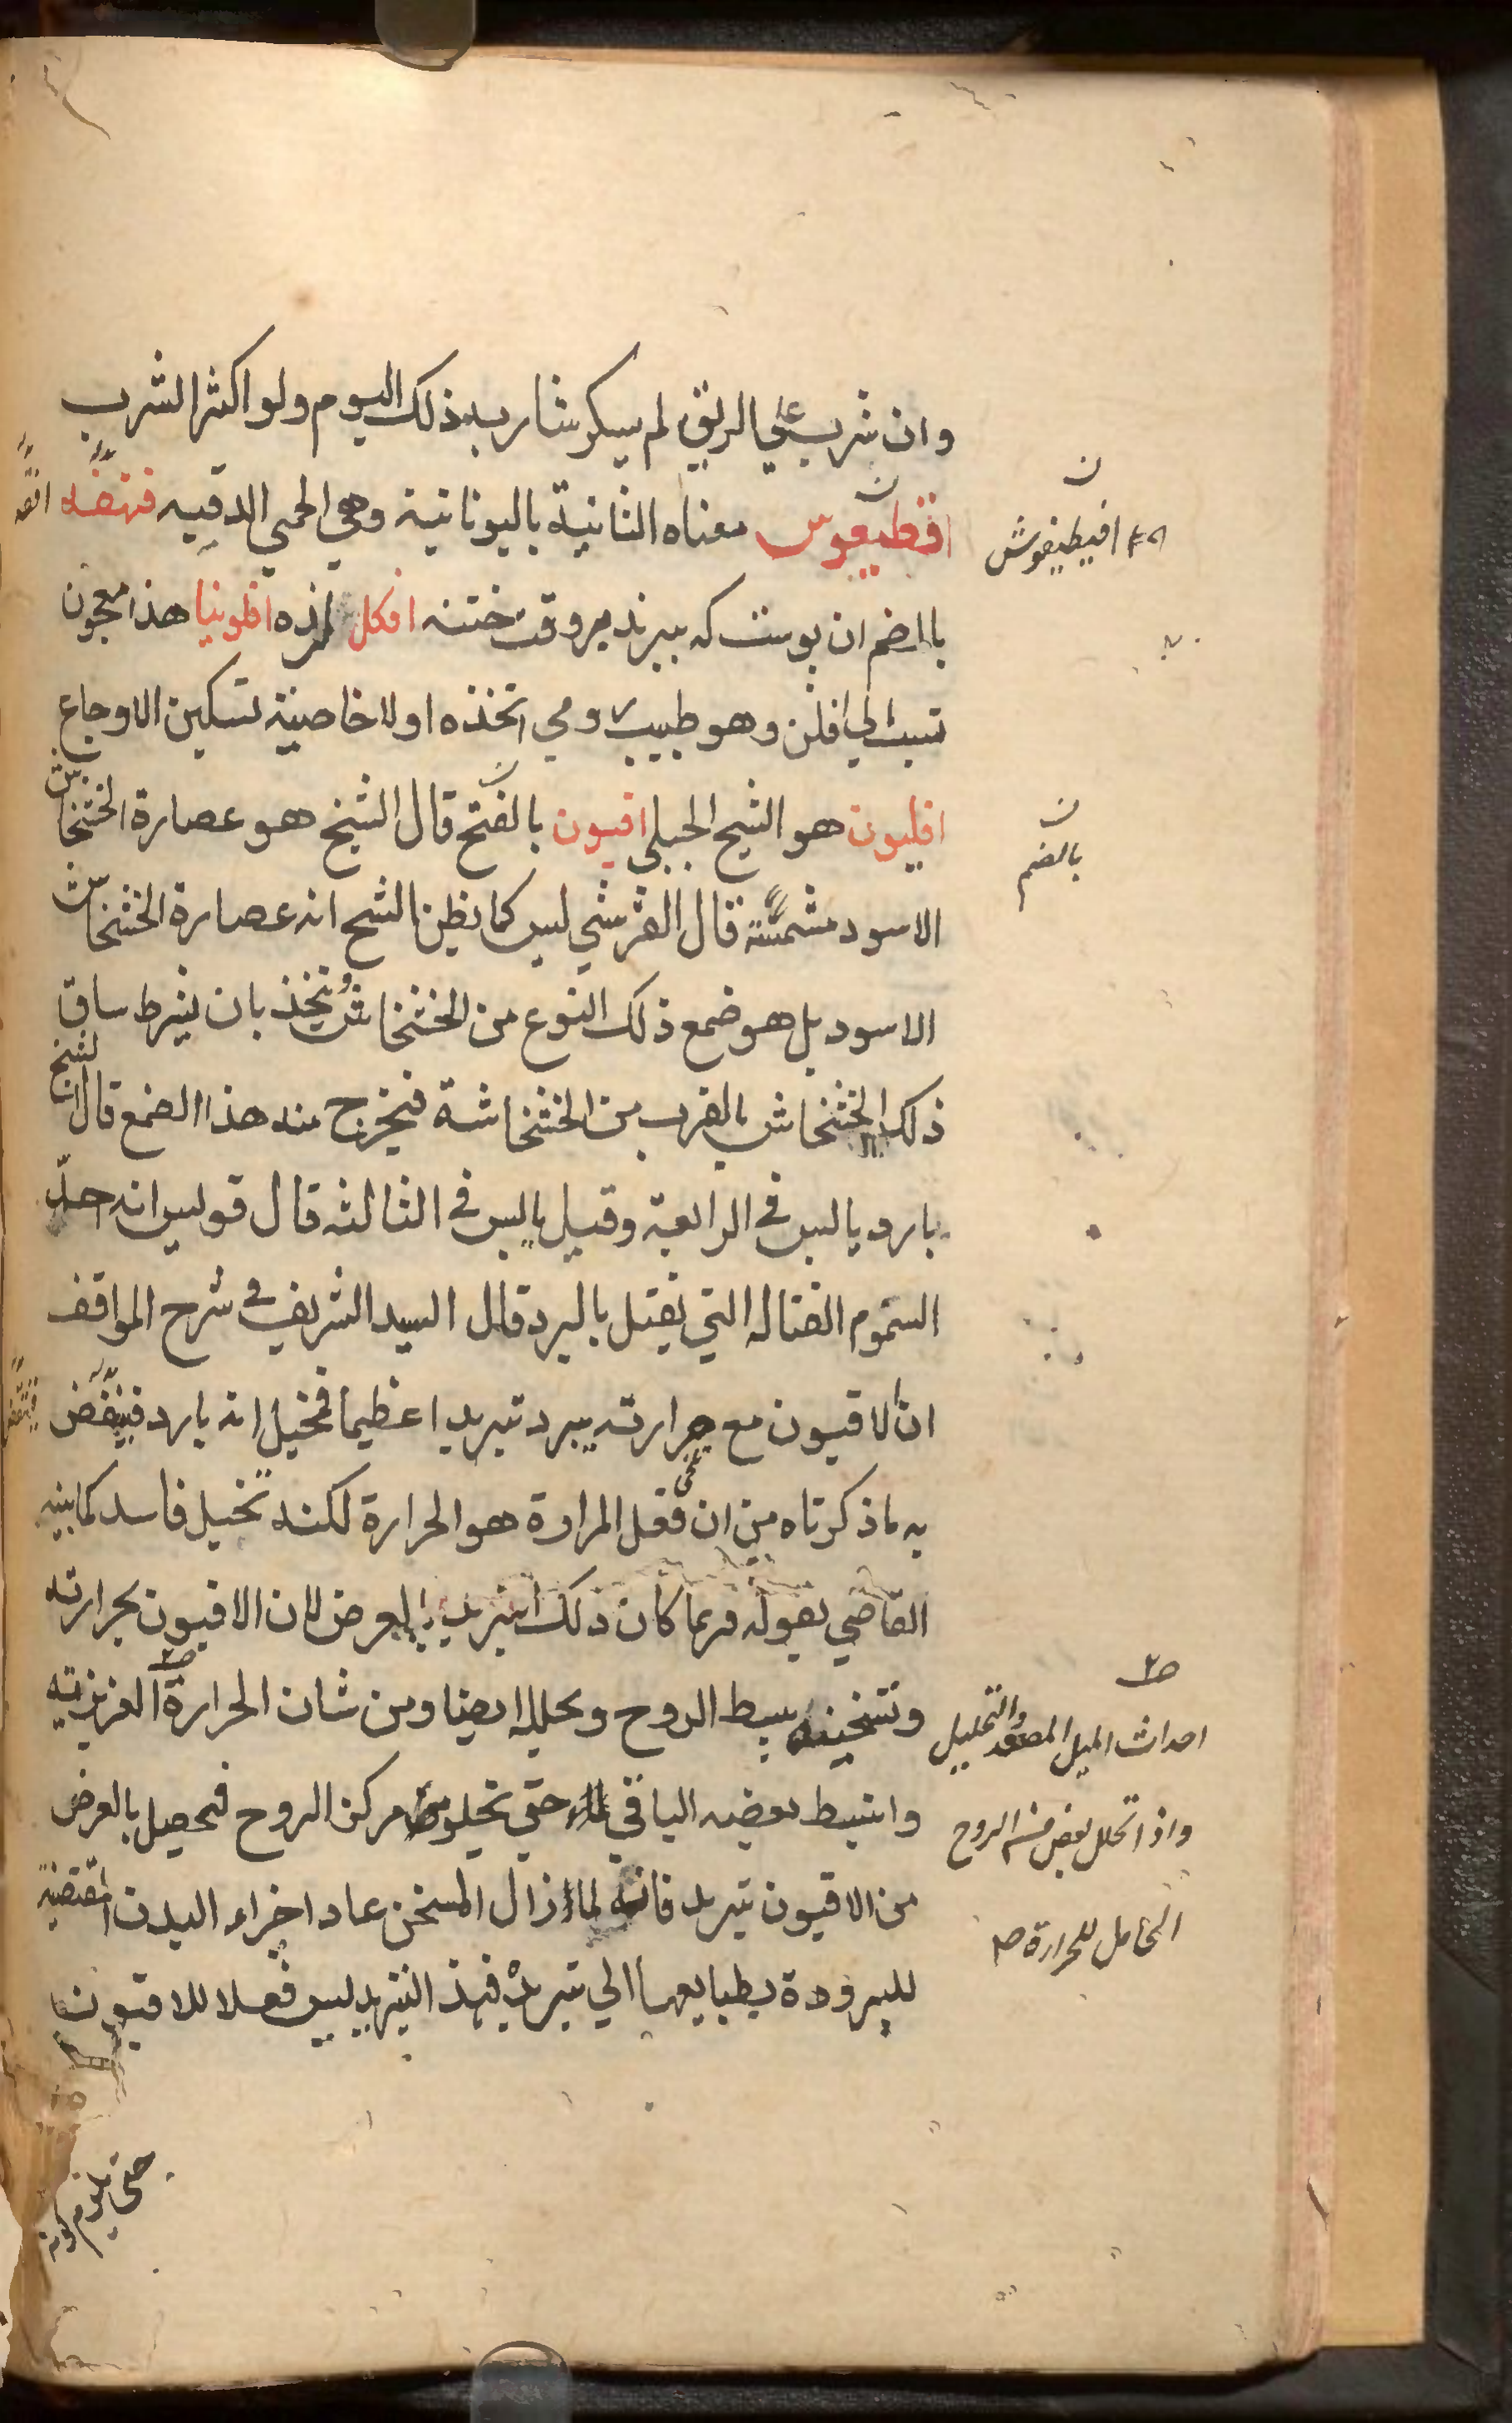 وان شرب علي الريق لم يسكر شاربه ذلك اليوم ولو اكثر الشرب
اقطيقوس معناه الثانية باليونانية وهي الحمي الدقيه
بالضم ان بوست كه ببرند در وقت ختنه افكل لرزه افلونيا هذا معجون
نسبت الي افلن وهو طبيب رومي اتخذه اولا خاصيته تسكين الاوجاع
افليون هو الشيح الجبلي افيون بالفتح قال الشيخ هو عصارة الخشخاش
الاسود مشمسة قال القرشي ليس كما يظن الشيخ انه عصارة الخشخاش
الاسود بل هو ضمع ذلك النوع من الخشخاش ويتخذ بان يشرط ساق
ذلك الخشخاش بالقرب من الخشخاشة فيخرج منه هذا الضمع قال الشيخ
بارد يابس في الرابعة وقيل يابس في الثالثه قال قولس انه احد
السموم القتاله التي يقتل بالبرد قال السيد الشريف في شرح المواقف
ان الافيون مع حرارته يبرد تبريدا عظيما فتخيل انه بارد فينقض
به ما ذكرناه من ان فعل المرارة هو الحرارة لكنه تخيل فاسد كما بينه
القاضي بقوله فربما كان ذلك التبريد بالعرض لان الافيون بحرارته
وتسخينه يبسط الروح ويحلله ايضا ومن شان الحرارة الغريزيه
وانبسط بعضه الباقي حتي تخلو من مركز الروح فيحصل بالعرض
من الافيون تبريد فانه لما زال المسخن عاد اجزاء البدن المقتضية
للبرودة بطبايعها الي تبريده فهذا التبريد ليس فعلا للافيون
افيطيقوش
بالضم
احداث الميل المصعد والتحليل
واذا تحلل بعض من الروح
الحامل للحرارة صح
حتي يلزم كونه